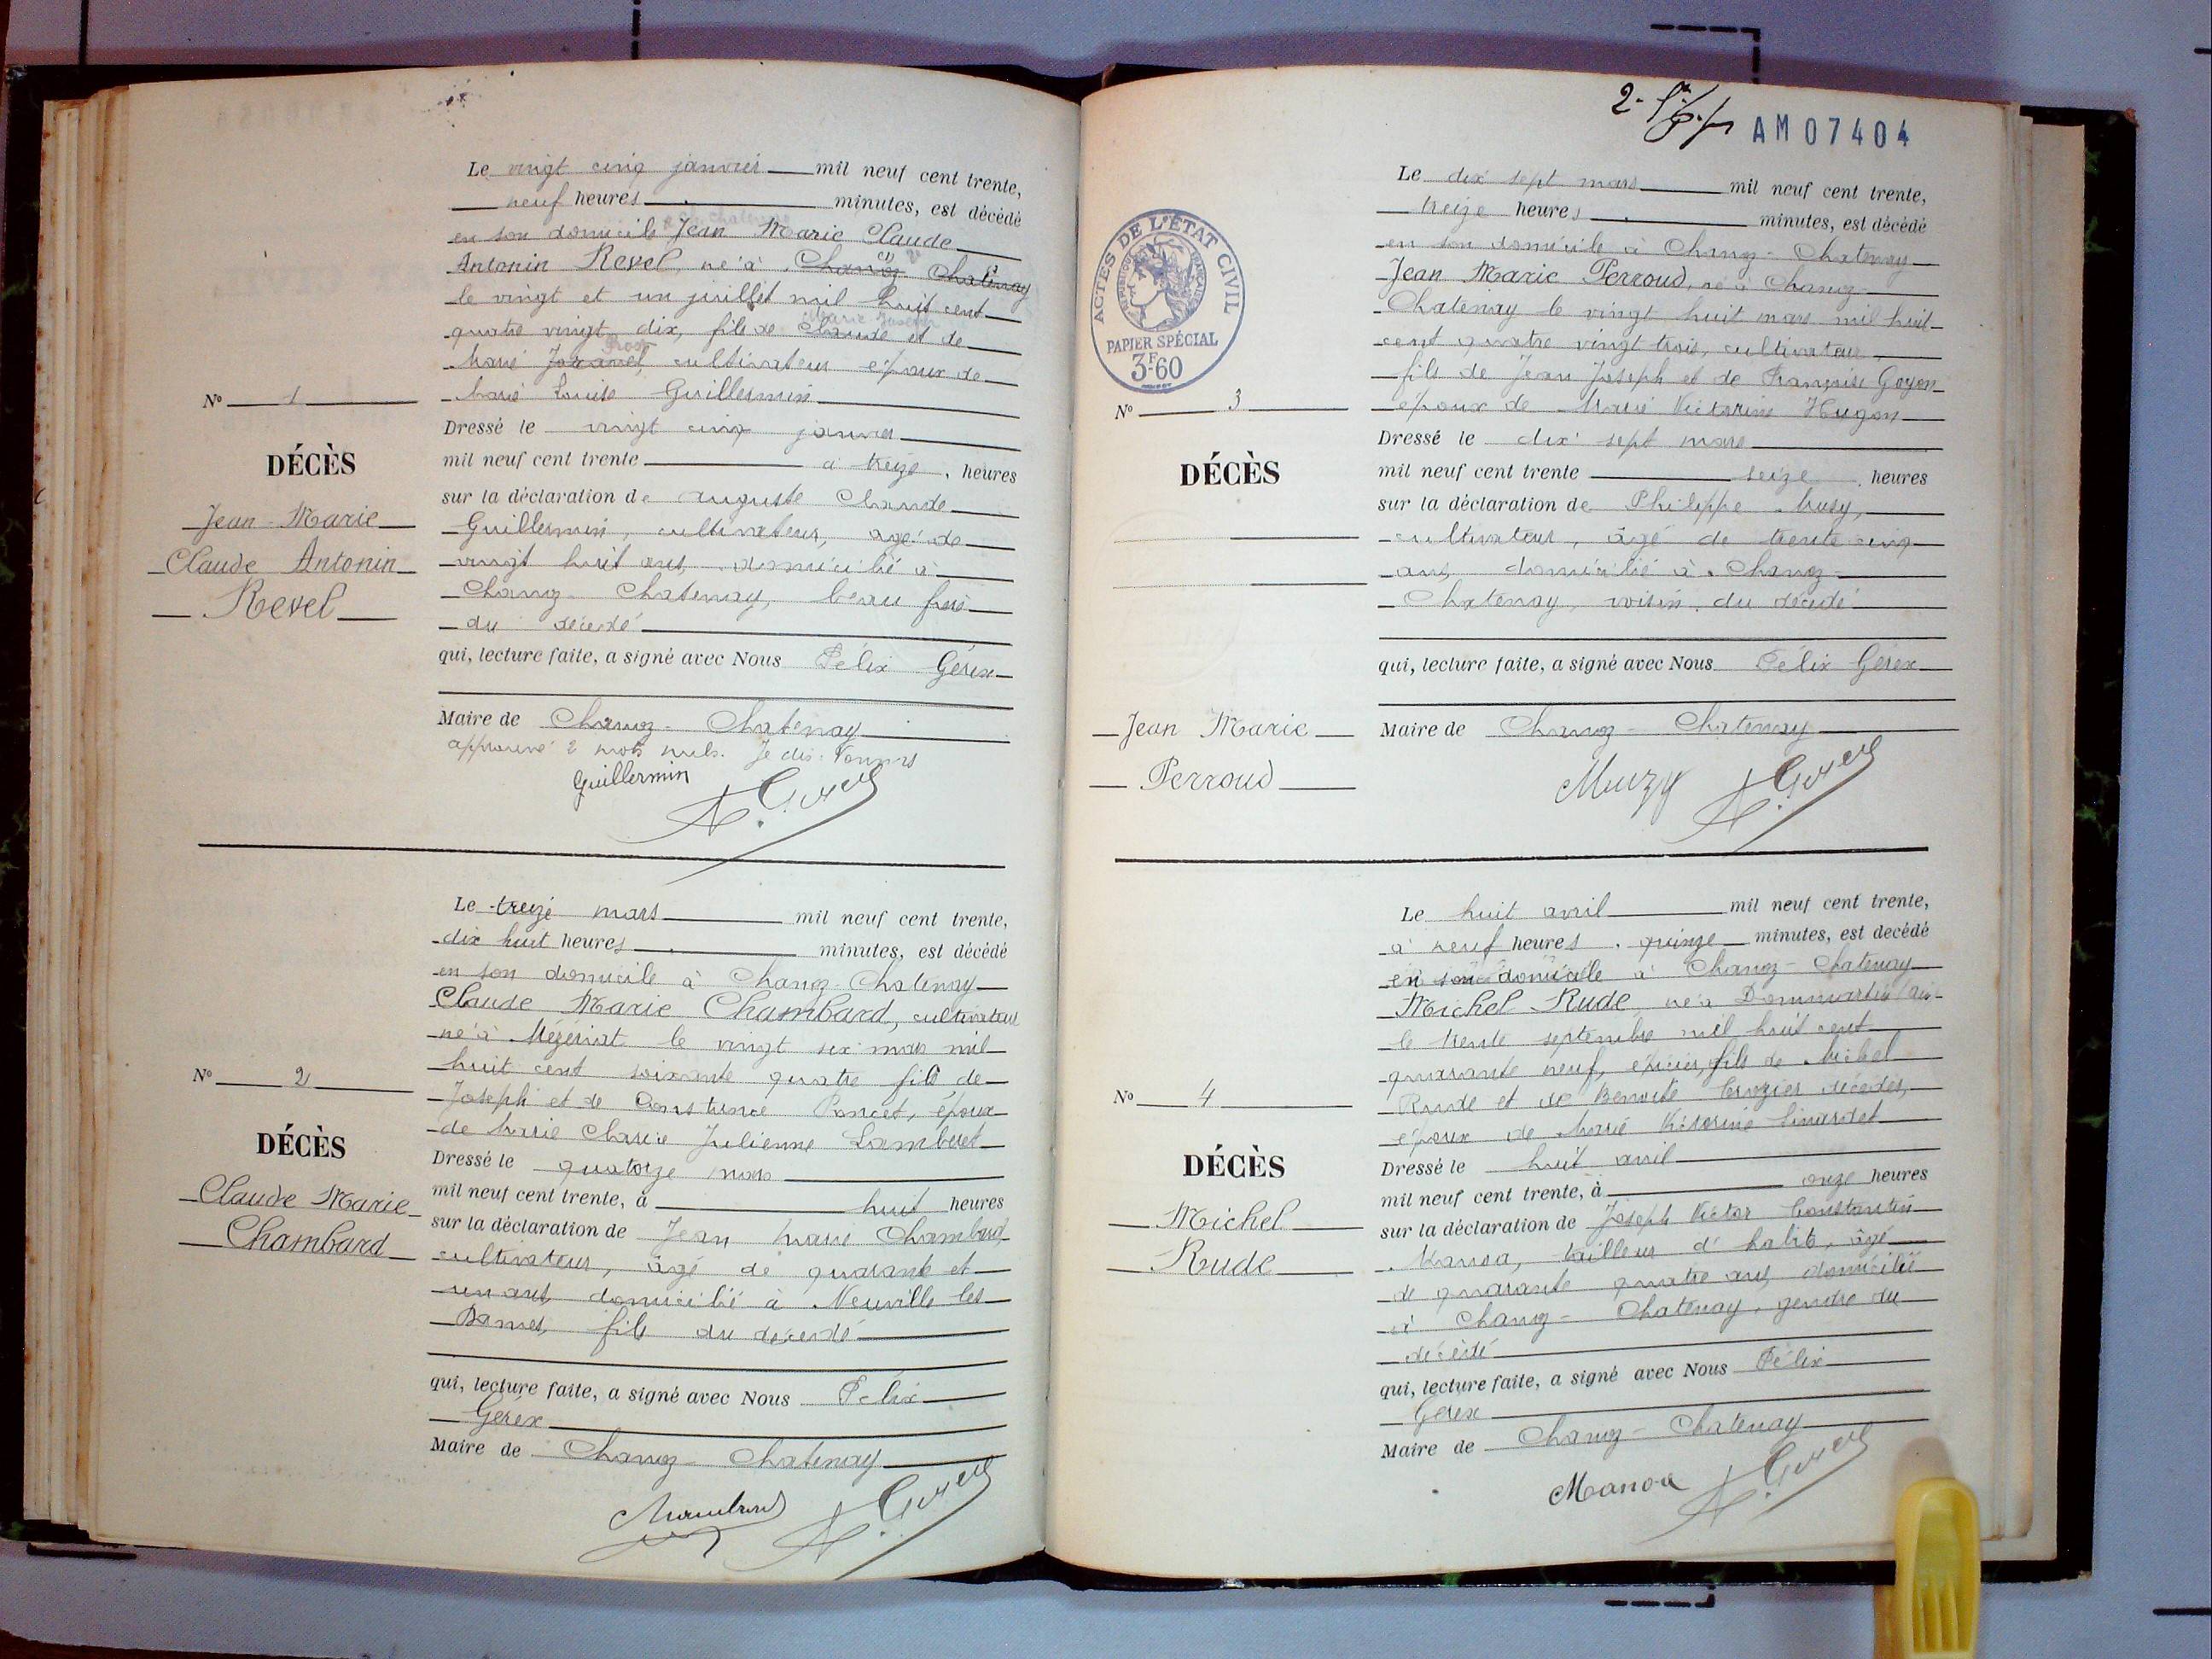 Le vingt cinq janvier mil neuf cent trente,
neuf heures minutes, est décédé
en son domicile Jean Marie Claude
Antonin Revel, né à Chanoz Chatenay
le vingt et un juillet mil huit cent
quatre vingt dix, fils de Claude et de
Marie cultivateur époux de
Marie Louise Guillermin
Nº 1
DÉCÈS
Jean-Marie
Claude Antonin
Revel
Dressé le vingt cinq janvier
mil neuf cent trente à treize heures
sur la déclaration de Auguste Claude
Guillermin, cultivateur, âgé de
vingt huit ans, domicilié à
Chanoz-Chatenay, beau frère
du décédé
qui, lecture faite, a signé avec Nous Félix Gérex
Maire de Chanoz-Chatenay
approuvé 2 mots nuls. Je dis: Vonnas
Guillermin
Le treize mars mil neuf cent trente,
dix huit heures minutes, est décédé
en son domicile à Chanoz-Chatenay
Claude Marie Chambard, cultivateur
né à Mézériat le vingt six mars mil
huit cent soixante quatre fils de
Joseph et de Constance Poncet, époux
de Marie Julienne Lamberet
Nº 2
DÉCÈS
Claude Marie
Chambard
Dressé le quatorze mars
mil neuf cent trente, à huit heures
sur la déclaration de Jean Marie Chambard,
cultivateur, âgé de quarante et
un ans, domicilié à Neuville les
Dames, fils du décédé
qui, lecture faite, a signé avec Nous Félix
Gérex
Maire de Chanoz-Chatenay
AM07404
ACTES DE L'ÉTAT CIVIL
RÉPUBLIQUE FRANÇAISE
PAPIER SPÉCIAL
3F60
Le dix sept mars mil neuf cent trente,
treize heures minutes, est décédé
en son domicile à Chanoz-Chatenay
Jean Marie Perroud, né à Chanoz-
Chatenay le vingt huit mars mil huit
cent quatre vingt trois, cultivateur,
fils de Jean Joseph et de Françoise Goyon
époux de Marie Victorine Hugon
Nº 3
DÉCÈS
Jean Marie
Perroud
Dressé le dix sept mars
mil neuf cent trente seize heures
sur la déclaration de Philippe Muzy,
cultivateur, âgé de trente cinq
ans, domicilié à Chanoz-
Chatenay, voisin du décédé
qui, lecture faite, a signé avec Nous Félix Gérex
Maire de Chanoz-Chatenay
Muzy
Le huit avril mil neuf cent trente,
à neuf heures quinze minutes, est décédé
en son domicile à Chanoz-Chatenay
Michel Rude, né à Dommartin
le trente septembre mil huit cent
quarante neuf, épicier, fils de Michel
Rude et de Benoite Crozier décédés,
époux de Marie Victorine
Nº 4
DÉCÈS
Michel
Rude
Dressé le huit avril
mil neuf cent trente, à onze heures
sur la déclaration de Joseph Victor Constantin
Manoa, tailleur d'habits, âgé
de quarante quatre ans, domicilié
à Chanoz-Chatenay, gendre du
décédé
qui, lecture faite, a signé avec Nous Félix
Gérex
Maire de Chanoz-Chatenay
Manoa